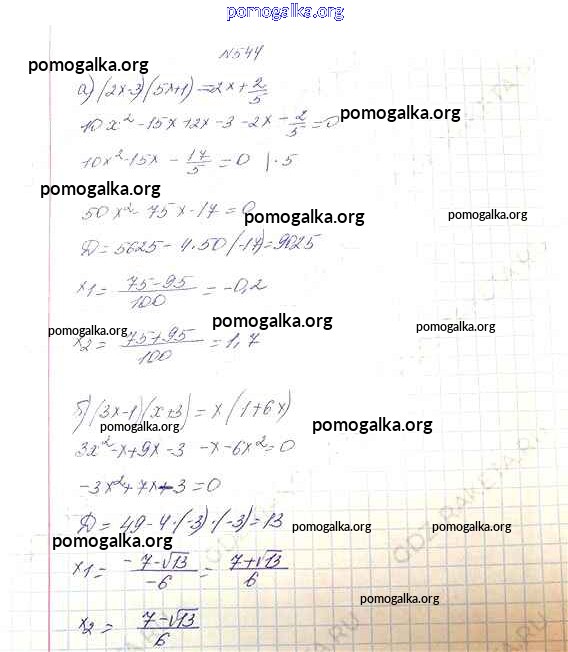 pomogalka.org
N544
pomogalka.org
а) (2x-3)(5x+1)=2x+2/5
pomogalka.org
10x²-15x+2x-3-2x-2/5=0
10x²-15x-17/5=0 |·5
pomogalka.org
50x²-75x-17=0
pomogalka.org
D=5625-4·50(-17)=9025
x1=(75-95)/100=-0,2
pomogalka.org
pomogalka.org
pomogalka.org
x2=(75+95)/100=1,7
б) (3x-1)(x+3)=x(1+6x)
pomogalka.org
pomogalka.org
3x²-x+9x-3-x-6x²=0
-3x²+7x-3=0
D=49-4·(-3)·(-3)=13
pomogalka.org
pomogalka.org
pomogalka.org
x1=(-7-√13)/-6=(7+√13)/6
pomogalka.org
x2=(7-√13)/6